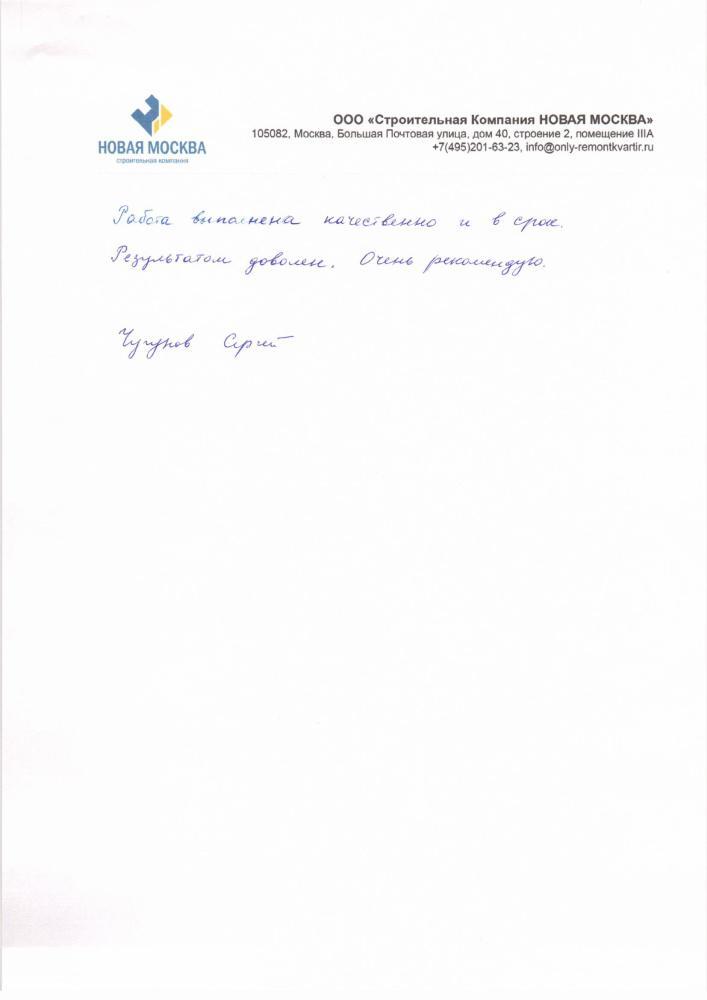 НОВАЯ МОСКВА
строительная компания
ООО «Строительная Компания НОВАЯ МОСКВА»
105082, Москва, Большая Почтовая улица, дом 40, строение 2, помещение IIIА
+7(495)201-63-23, info@only-remontkvartir.ru
Работа выполнена качественно и в срок.
Результатом доволен. Очень рекомендую.
Чугунов Сергей